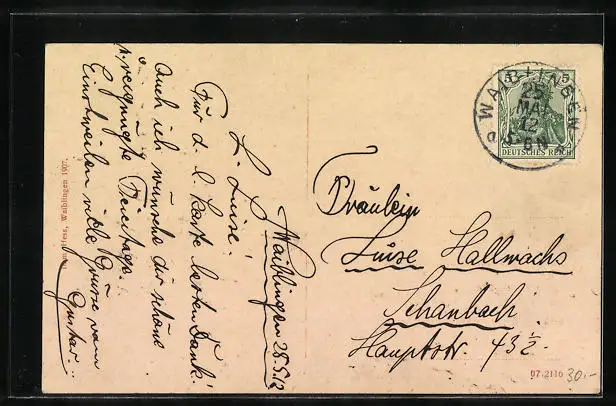 Waiblingen 25.5.12
L. Luise!
Für d. l. Karte besten Dank!
Auch ich wünsche dir schöne
u. vergnügte Feiertage.
Einstweilen viele Grüsse vom
Gustav.
Waiblingen 1907.
WAIBLINGEN
25
MAI
12
5
DEUTSCHES REICH
Fräulein
Luise Hallwachs
Schanbach
Hauptstr. 43½
07.2116
30.-